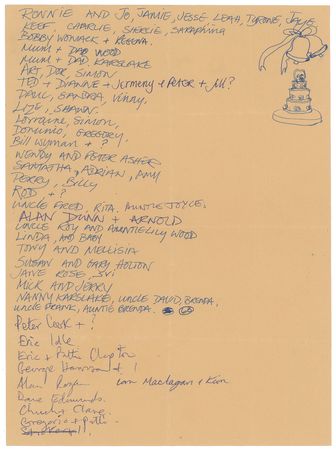 RONNIE AND JO, JAMIE, JESSE LEAH, TYRONE, JULIE
KEEF, CHARLIE, SHIRLIE, SARAPHINA
BOBBY WOMACK + REGINA.
MUM + DAD WOOD
MUM + DAD KARSLAKE
ART, DOR, SIMON
TED + DIANNE + Jermeny + PETER + Jill?
PAUL, SANDRA, Vinny.
LIZE, SHAWN.
Lorraine, SIMON,
DOMINIO, GREGORY
Bill Wyman + ? !
WENDY AND PETER ASHER
SAMTATHA, ADRIAN, AMY
PERRY, BILLY
ROD + ?
UNCLE FRED, RITA. AUNTIE JOYCE.
ALAN DUNN + ARNOLD
UNCLE ROY AND AUNTIE LILY WOOD
LINDA, AND BABY
TONY AND MELLISIA
SUSAN AND GARY HOLTON
JANE ROSE, SVI
MICK AND JERRY
NANNY KARSLAKE, UNCLE DAVID, BRENDA.
UNCLE FRANK, AUNTIE BRENDA.
Peter Cook + ?
Eric Idle
Eric + Patti Clapton
George Harrison + 1
Alan Rogan Ian Maclagan + Kim
Dave Edmunds.
Chuch, Clare.
Gregorio + Patti